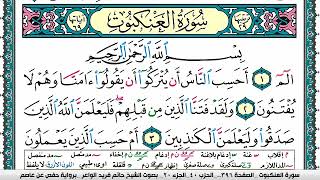 سُورَةُ العَنكَبُوتِ
بِسْمِ ٱللَّهِ ٱلرَّحْمَٰنِ ٱلرَّحِيمِ
الٓمٓ ١ أَحَسِبَ ٱلنَّاسُ أَن يُتْرَكُوٓا۟ أَن يَقُولُوٓا۟ ءَامَنَّا وَهُمْ لَا
يُفْتَنُونَ ٢ وَلَقَدْ فَتَنَّا ٱلَّذِينَ مِن قَبْلِهِمْ فَلَيَعْلَمَنَّ ٱللَّهُ ٱلَّذِينَ
صَدَقُوا۟ وَلَيَعْلَمَنَّ ٱلْكَٰذِبِينَ ٣ أَمْ حَسِبَ ٱلَّذِينَ يَعْمَلُونَ
سورة العنكبوت . الصفحة ٣٩٦ . الحزب ٤٠ . الجزء ٢٠ . بصوت الشيخ حاتم فريد الواعر . برواية حفص عن عاصم